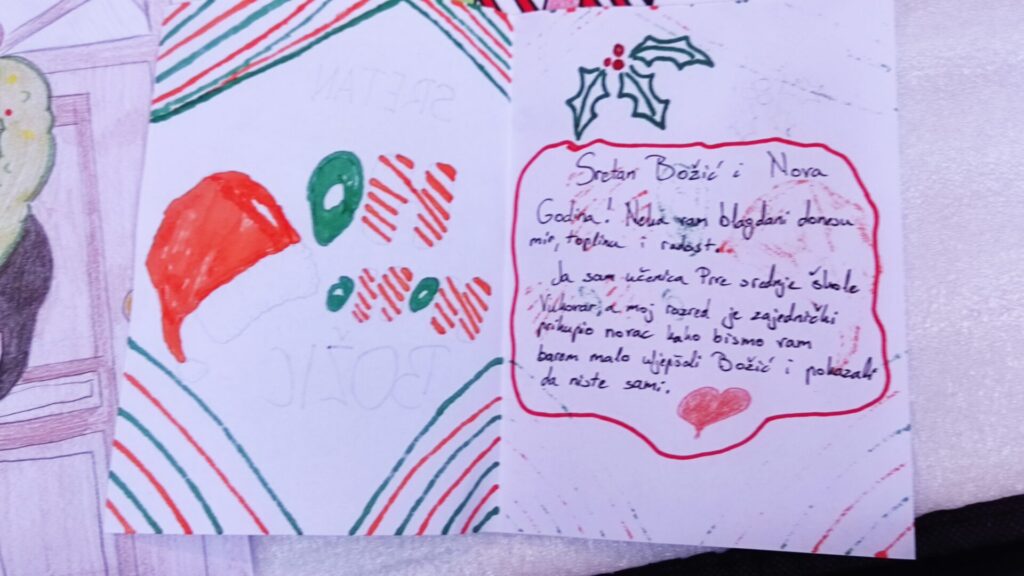 Sretan Božić i Nova
Godina! Neka vam blagdani donesu
mir, toplinu i radost...
Ja sam učenica Prve srednje škole
Vukovar, a moj razred je zajednički
prikupio novac kako bismo vam
barem malo uljepšali Božić i pokazali
da niste sami.
SRETAN
BOŽIĆ